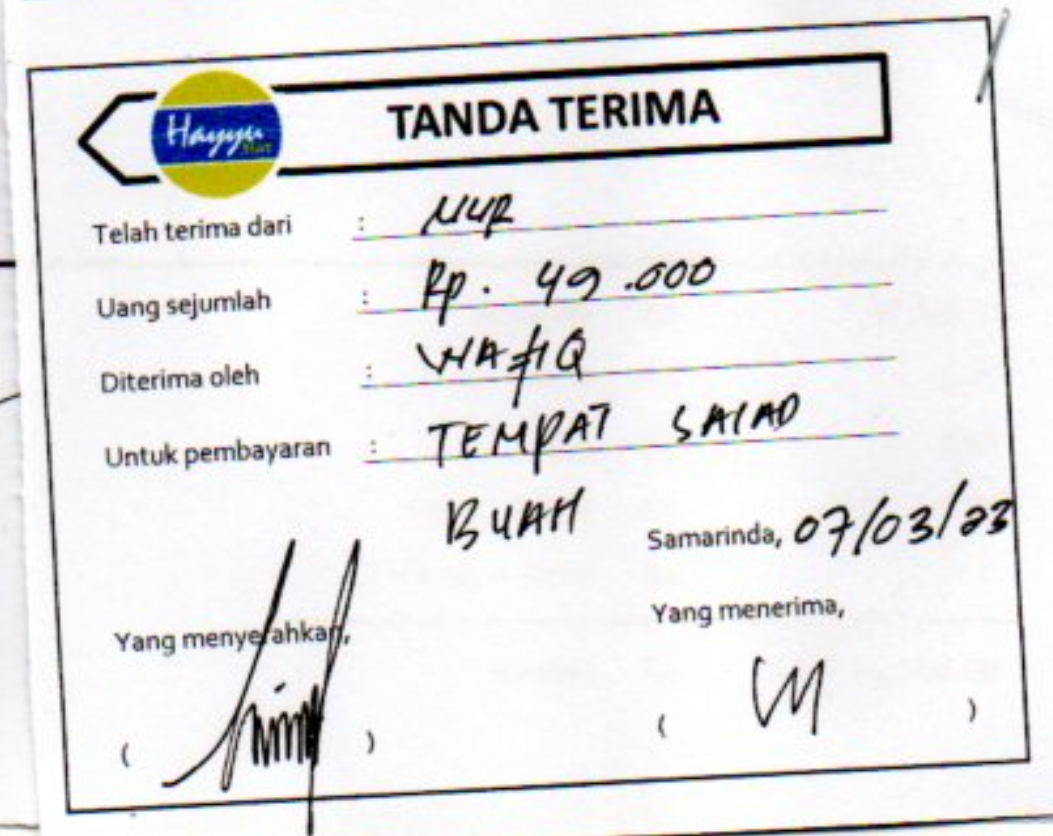 Hayyu Mart
TANDA TERIMA
Telah terima dari : NUR
Uang sejumlah : Rp. 49.000
Diterima oleh : WAFIQ
Untuk pembayaran : TEMPAT SALAD
BUAH
Samarinda, 07/03/23
Yang menyerahkan, Yang menerima,
( ) ( )